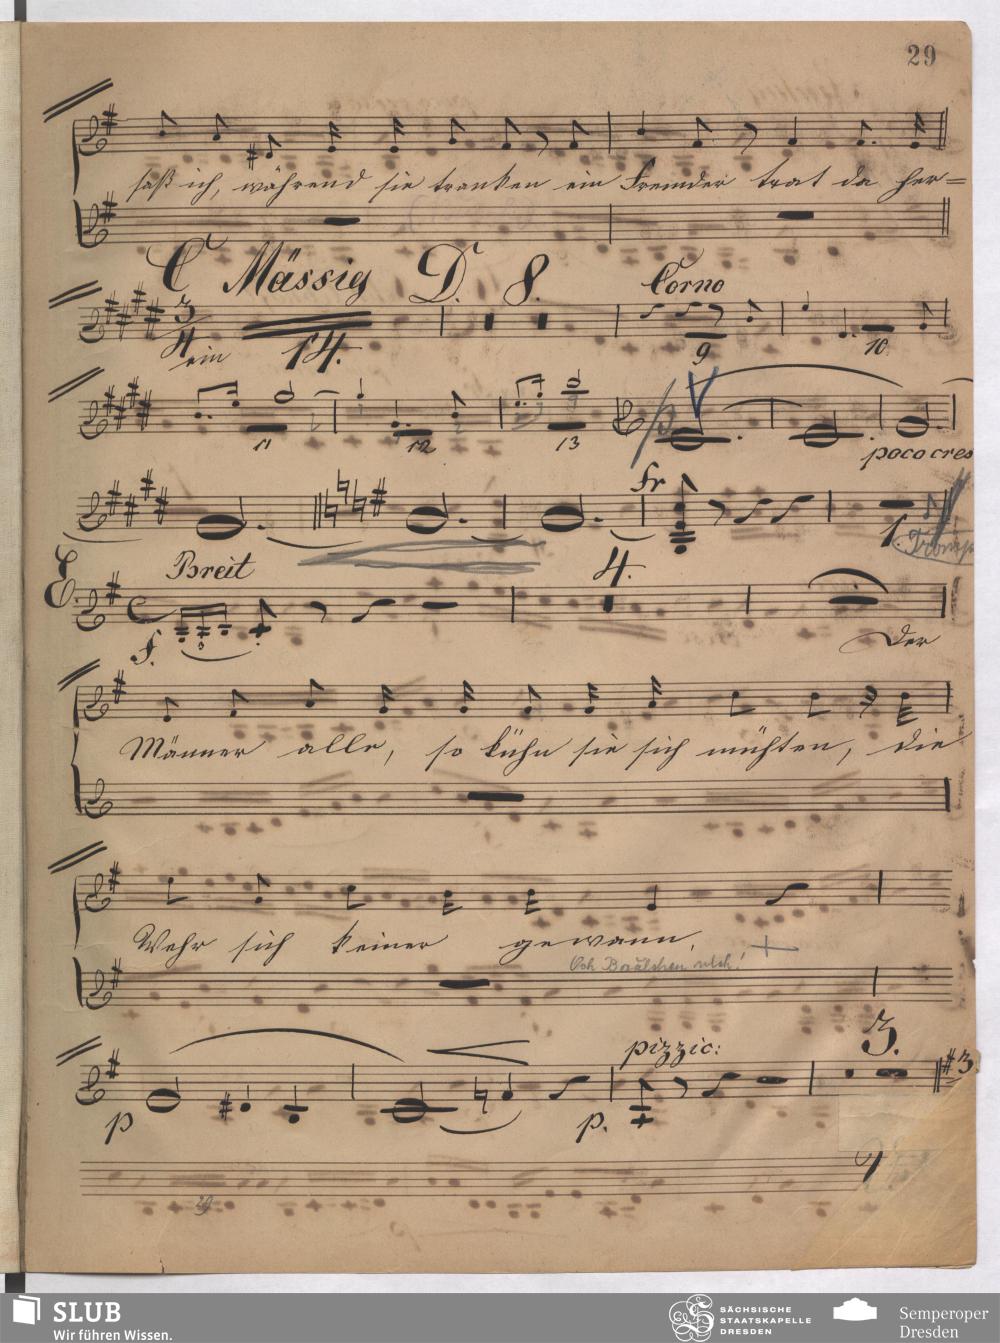 29
saß ich, während sie tranken ein Fremder trat da her=
C Mässig D. 8. Corno
3/4 ein 14. 9 10
11 12 13 p poco cres
fr 1. Tromp
E. Breit 4.
f. 3 Der
Männer alle, so kühn sie sich mühten, die
Wehr sich keiner gewann.
pizzic: 3. 3
p p.
29
SLUB
Wir führen Wissen.
SÄCHSISCHE
STAATSKAPELLE
DRESDEN
Semperoper
Dresden